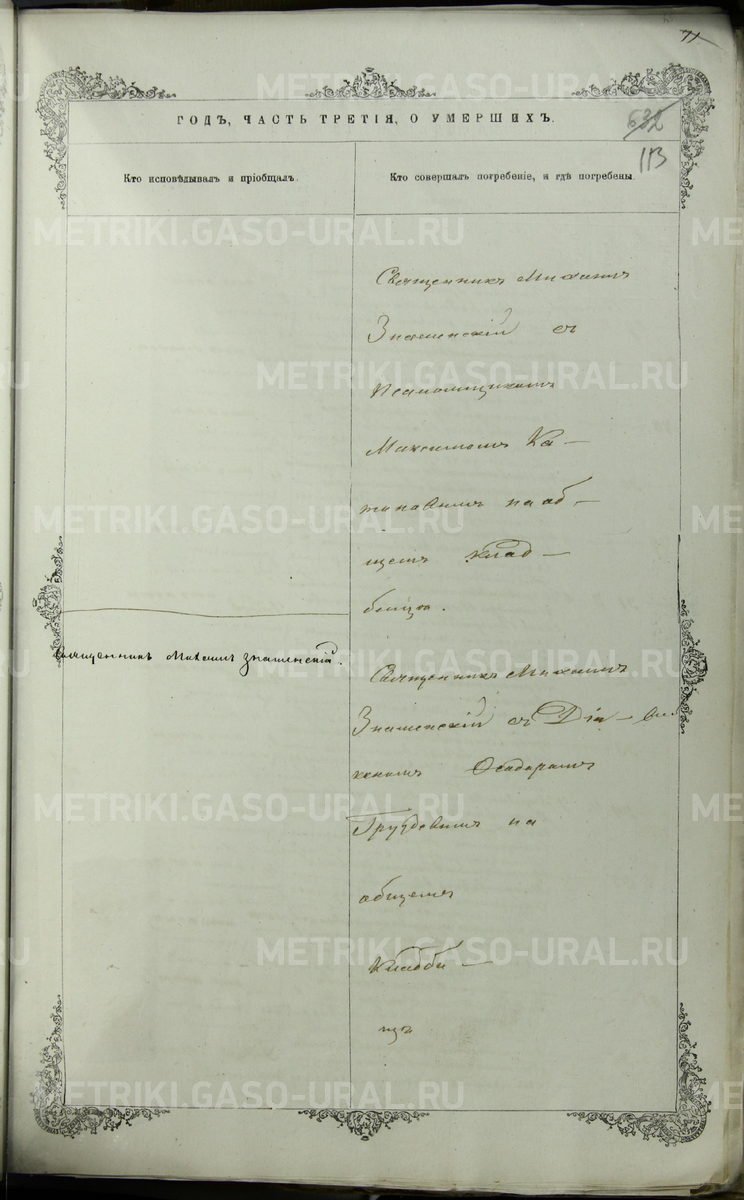 71
ГОДЪ, ЧАСТЬ ТРЕТІЯ, О УМЕРШИХЪ.
632
113
Кто исповѣдывалъ и пріобщалъ.
Кто совершалъ погребеніе, и гдѣ погребены.
Священникъ Михаилъ
Знаменскій съ
Псаломщикомъ
Максимомъ Ка-
тановымъ на об-
щемъ клад-
бищѣ.
Священникъ Михаилъ Знаменскій.
Священникъ Михаилъ
Знаменскій съ Діа-
кономъ Ѳеодоромъ
Груздевымъ на
общемъ
Кладби-
щѣ
METRIKI.GASO-URAL.RU